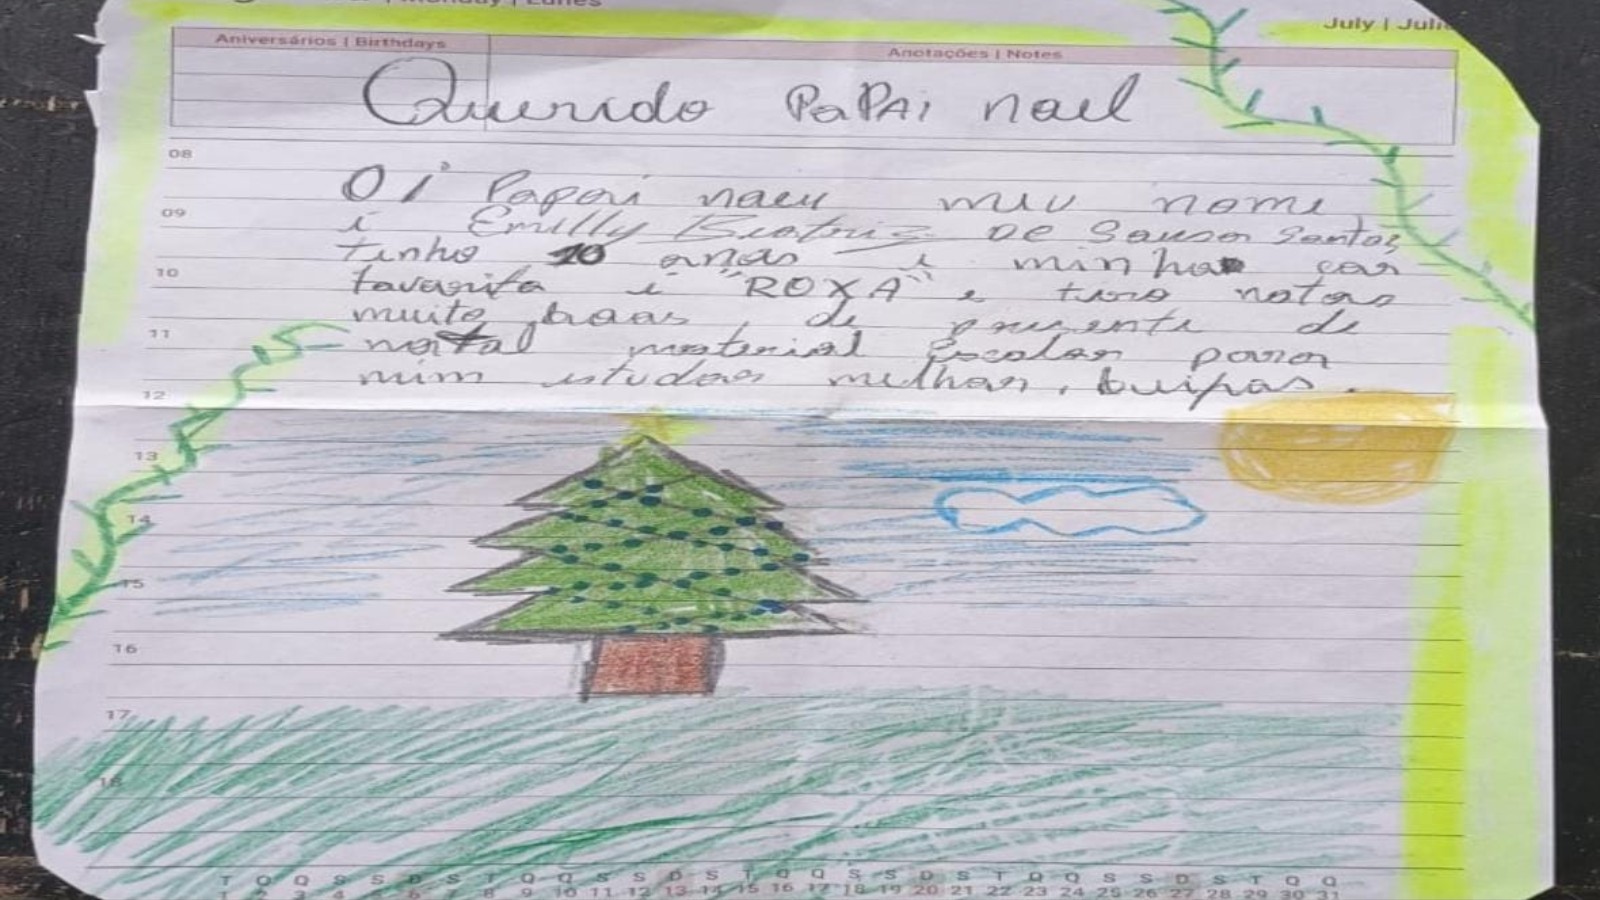 Monday | Lunes
July | Julio
Aniversários | Birthdays
Anotações | Notes
Querido PaPAi nael
08
Oi Papai naeu meu nome
09
é Emilly Beatriz De Sousa Santos,
tinho 10 anos e minha cor
10
favorita é "ROXA" e tiro notas
muito boas, de presente de
11
natal material Escolar para
mim estudar melhor,
12
13
14
15
16
17
18
T Q Q S S D S T Q Q S S D S T Q Q S S D S T Q Q S S D S T Q Q
1 2 3 4 5 6 7 8 9 10 11 12 13 14 15 16 17 18 19 20 21 22 23 24 25 26 27 28 29 30 31